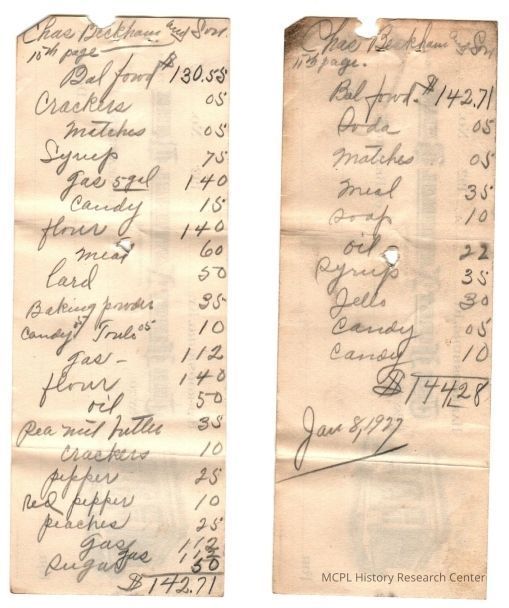 Chas Beckham and Son
10th page
Bal forwd $130.55
Crackers 05
Matches 05
Syrup 75
gas 5 gal 1 40
Candy 15
flour 1 40
60
lard 50
Baking powder 35
Candy 05 05 10
gas - 1 12
flour 1 40
oil 50
Pea nut butter 35
Crackers 10
pepper 25
red pepper 10
peaches 25
gas 1 12
gas 1 12
sugar 50
$142.71
Chas Beckham & Son
11th page.
Bal forwd. $142.71
Soda 05
Matches 05
Meal 35
soap 10
oil 22
Syrup 35
Jello 30
Candy 05
Candy 10
$144.28
Jan 8, 1927
MCPL History Research Center